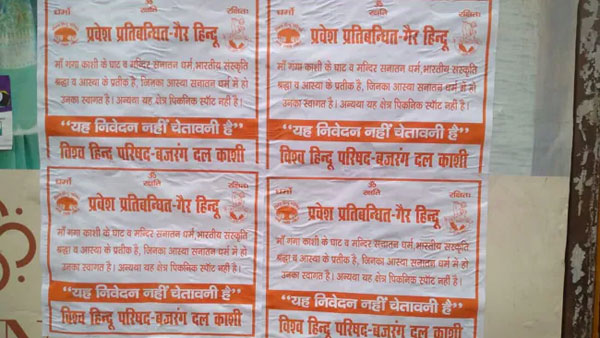 धर्मो ॐ रक्षति रक्षितः
प्रवेश प्रतिबन्धित-गैर हिन्दू
माँ गंगा काशी के घाट व मन्दिर सनातन धर्म,भारतीय संस्कृति
श्रद्धा व आस्था के प्रतीक है, जिनका आस्था सनातन धर्म मे हो
उनका स्वागत है। अन्यथा यह क्षेत्र पिकनिक स्पॉट नहीं है।
“यह निवेदन नहीं चेतावनी है”
विश्व हिन्दू परिषद-बजरंग दल काशी
प्रवेश प्रतिबन्धित-गैर हिन्दू
माँ गंगा काशी के घाट व मन्दिर सनातन धर्म,भारतीय संस्कृति
श्रद्धा व आस्था के प्रतीक है, जिनका आस्था सनातन धर्म मे हो
उनका स्वागत है। अन्यथा यह क्षेत्र पिकनिक स्पॉट नहीं है।
“यह निवेदन नहीं चेतावनी है”
विश्व हिन्दू परिषद-बजरंग दल काशी
धर्मो ॐ रक्षति रक्षितः
प्रवेश प्रतिबन्धित-गैर हिन्दू
माँ गंगा काशी के घाट व मन्दिर सनातन धर्म,भारतीय संस्कृति
श्रद्धा व आस्था के प्रतीक है, जिनका आस्था सनातन धर्म मे हो
उनका स्वागत है। अन्यथा यह क्षेत्र पिकनिक स्पॉट नहीं है।
“यह निवेदन नहीं चेतावनी है”
विश्व हिन्दू परिषद-बजरंग दल काशी
धर्मो ॐ रक्षति रक्षितः
प्रवेश प्रतिबन्धित-गैर हिन्दू
माँ गंगा काशी के घाट व मन्दिर सनातन धर्म,भारतीय संस्कृति
श्रद्धा व आस्था के प्रतीक है, जिनका आस्था सनातन धर्म मे हो
उनका स्वागत है। अन्यथा यह क्षेत्र पिकनिक स्पॉट नहीं है।
“यह निवेदन नहीं चेतावनी है”
विश्व हिन्दू परिषद-बजरंग दल काशी